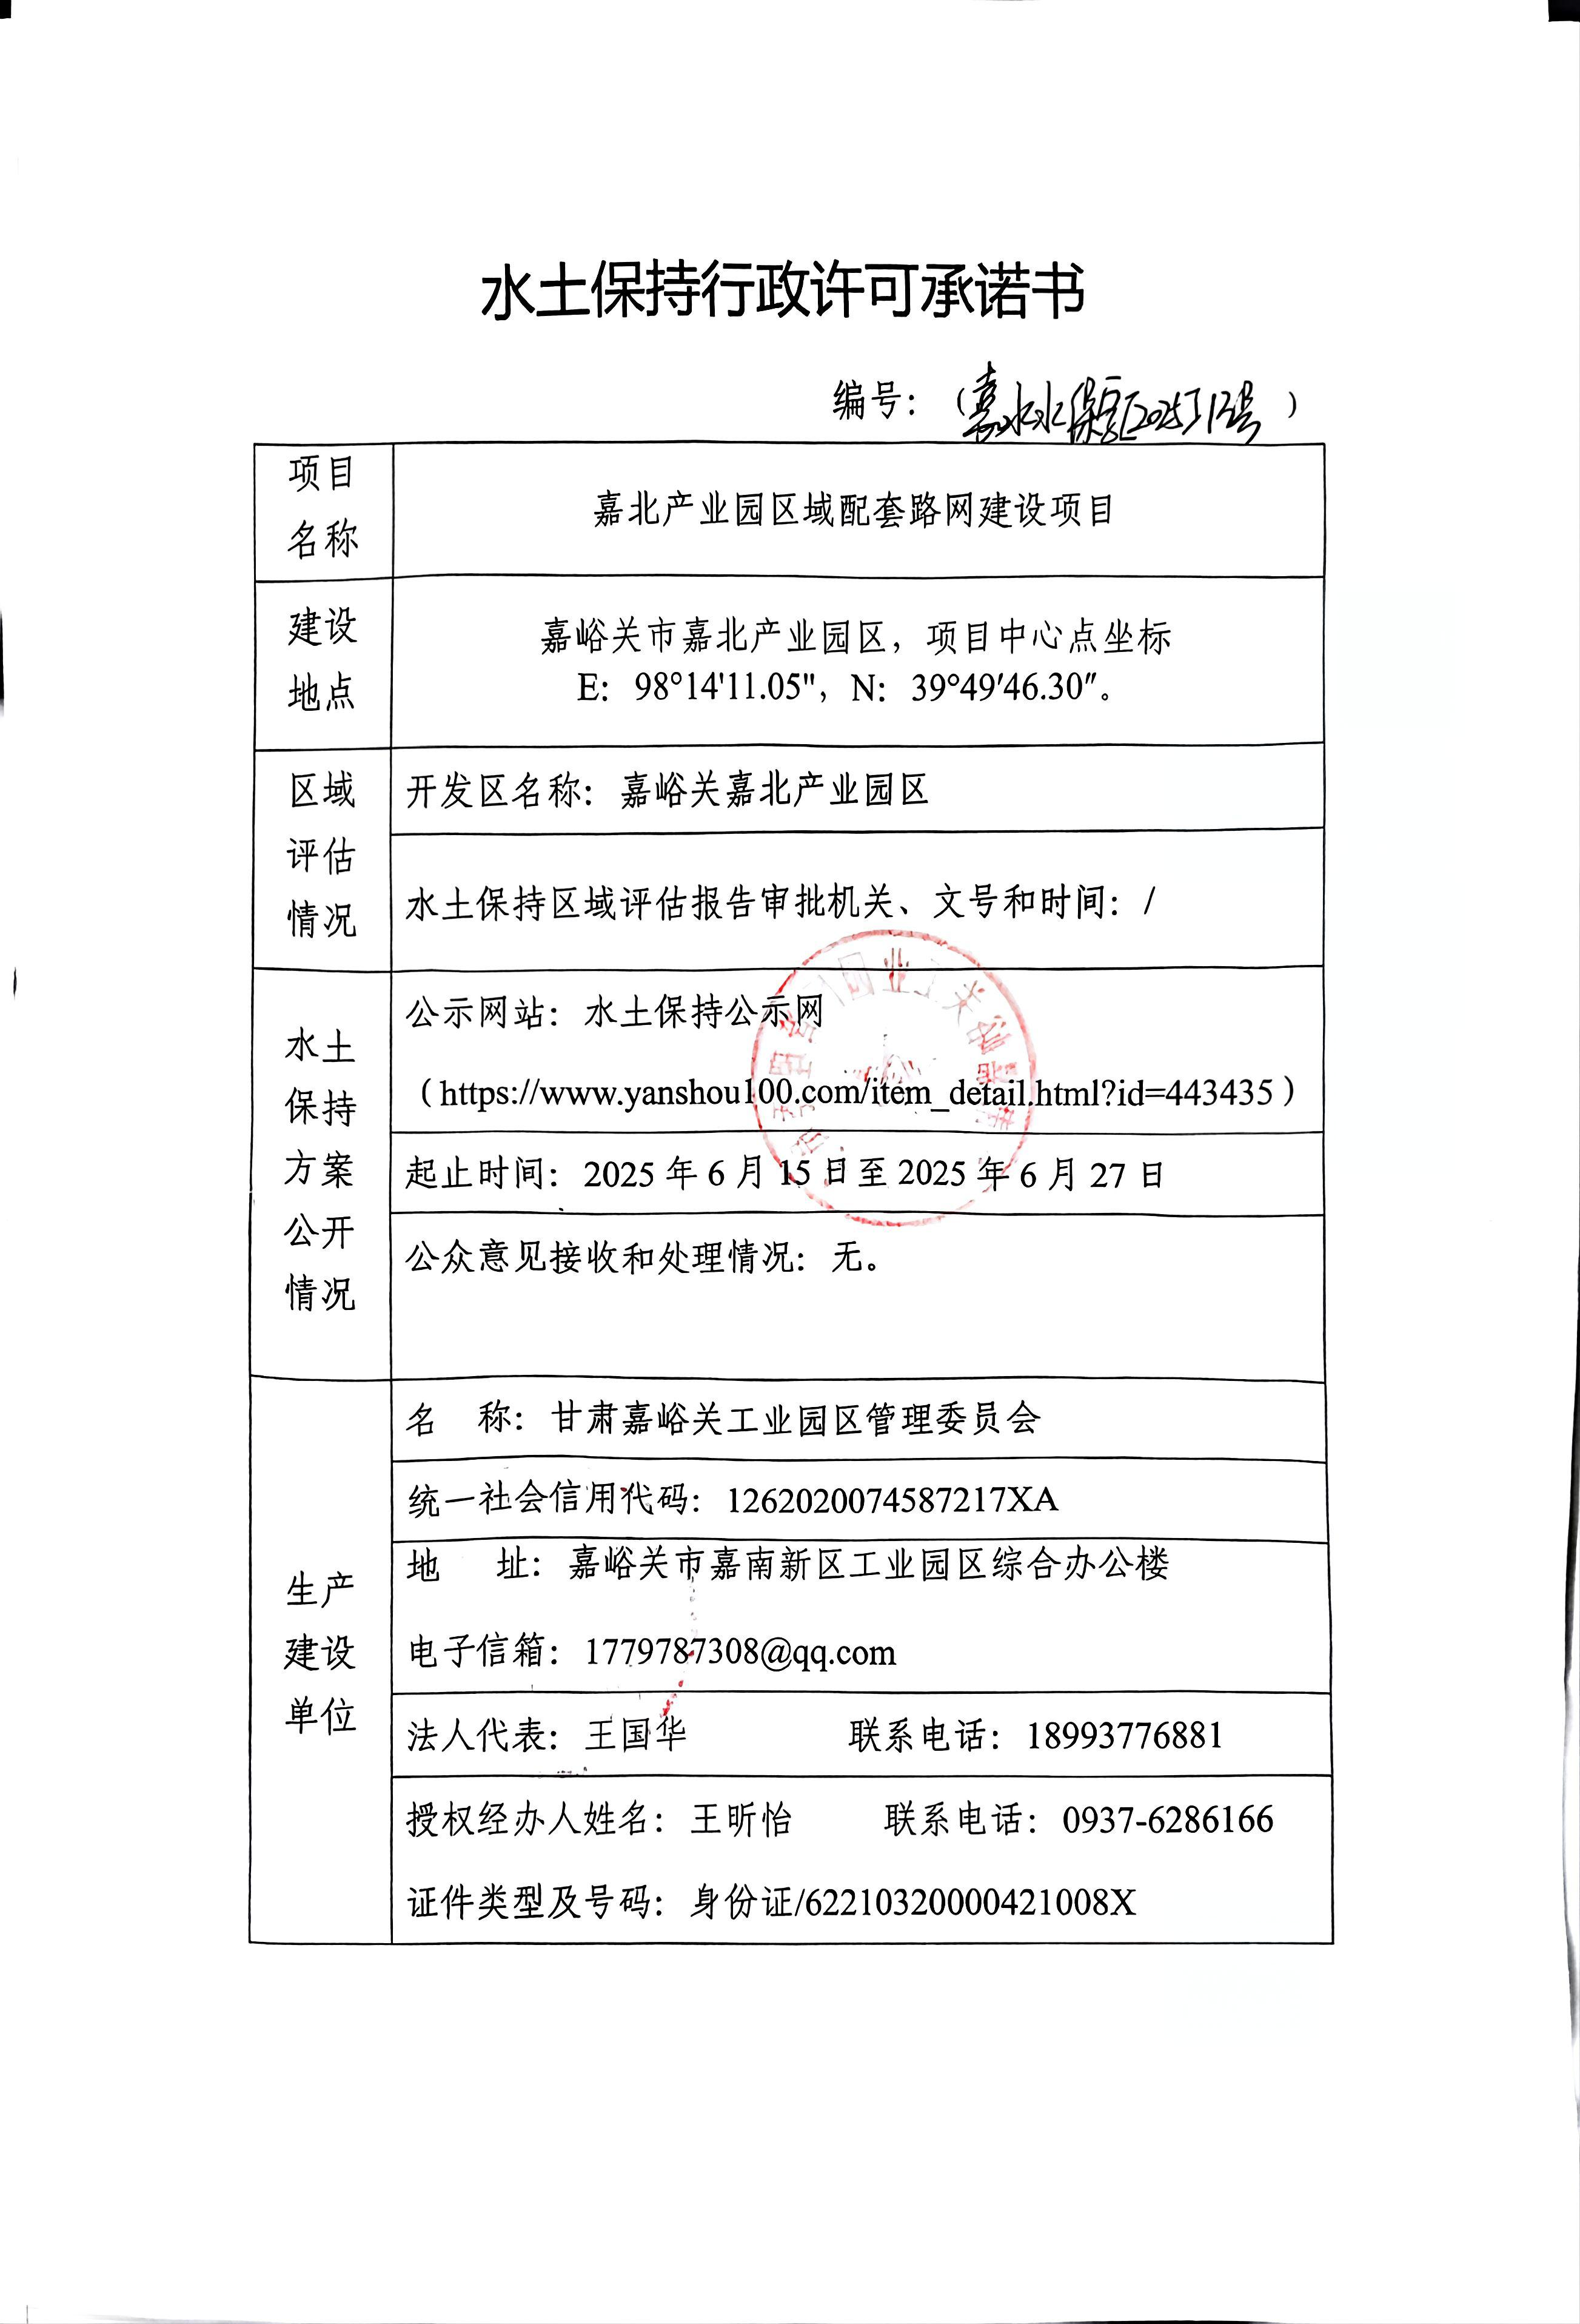 水土保持行政许可承诺书
编号：（嘉水水保[2025]12号）
项目
名称
嘉北产业园区域配套路网建设项目
建设
地点
嘉峪关市嘉北产业园区，项目中心点坐标
E：98°14'11.05"，N：39°49′46.30″。
区域
评估
情况
开发区名称：嘉峪关嘉北产业园区
水土保持区域评估报告审批机关、文号和时间：/
水土
保持
方案
公开
情况
公示网站：水土保持公示网
（https://www.yanshou100.com/item_detail.html?id=443435）
起止时间：2025 年 6 月 15 日至 2025 年 6 月 27 日
公众意见接收和处理情况：无。
生产
建设
单位
名 称：甘肃嘉峪关工业园区管理委员会
统一社会信用代码：1262020074587217XA
地 址：嘉峪关市嘉南新区工业园区综合办公楼
电子信箱：1779787308@qq.com
法人代表：王国华 联系电话：18993776881
授权经办人姓名：王昕怡 联系电话：0937-6286166
证件类型及号码：身份证/62210320000421008X